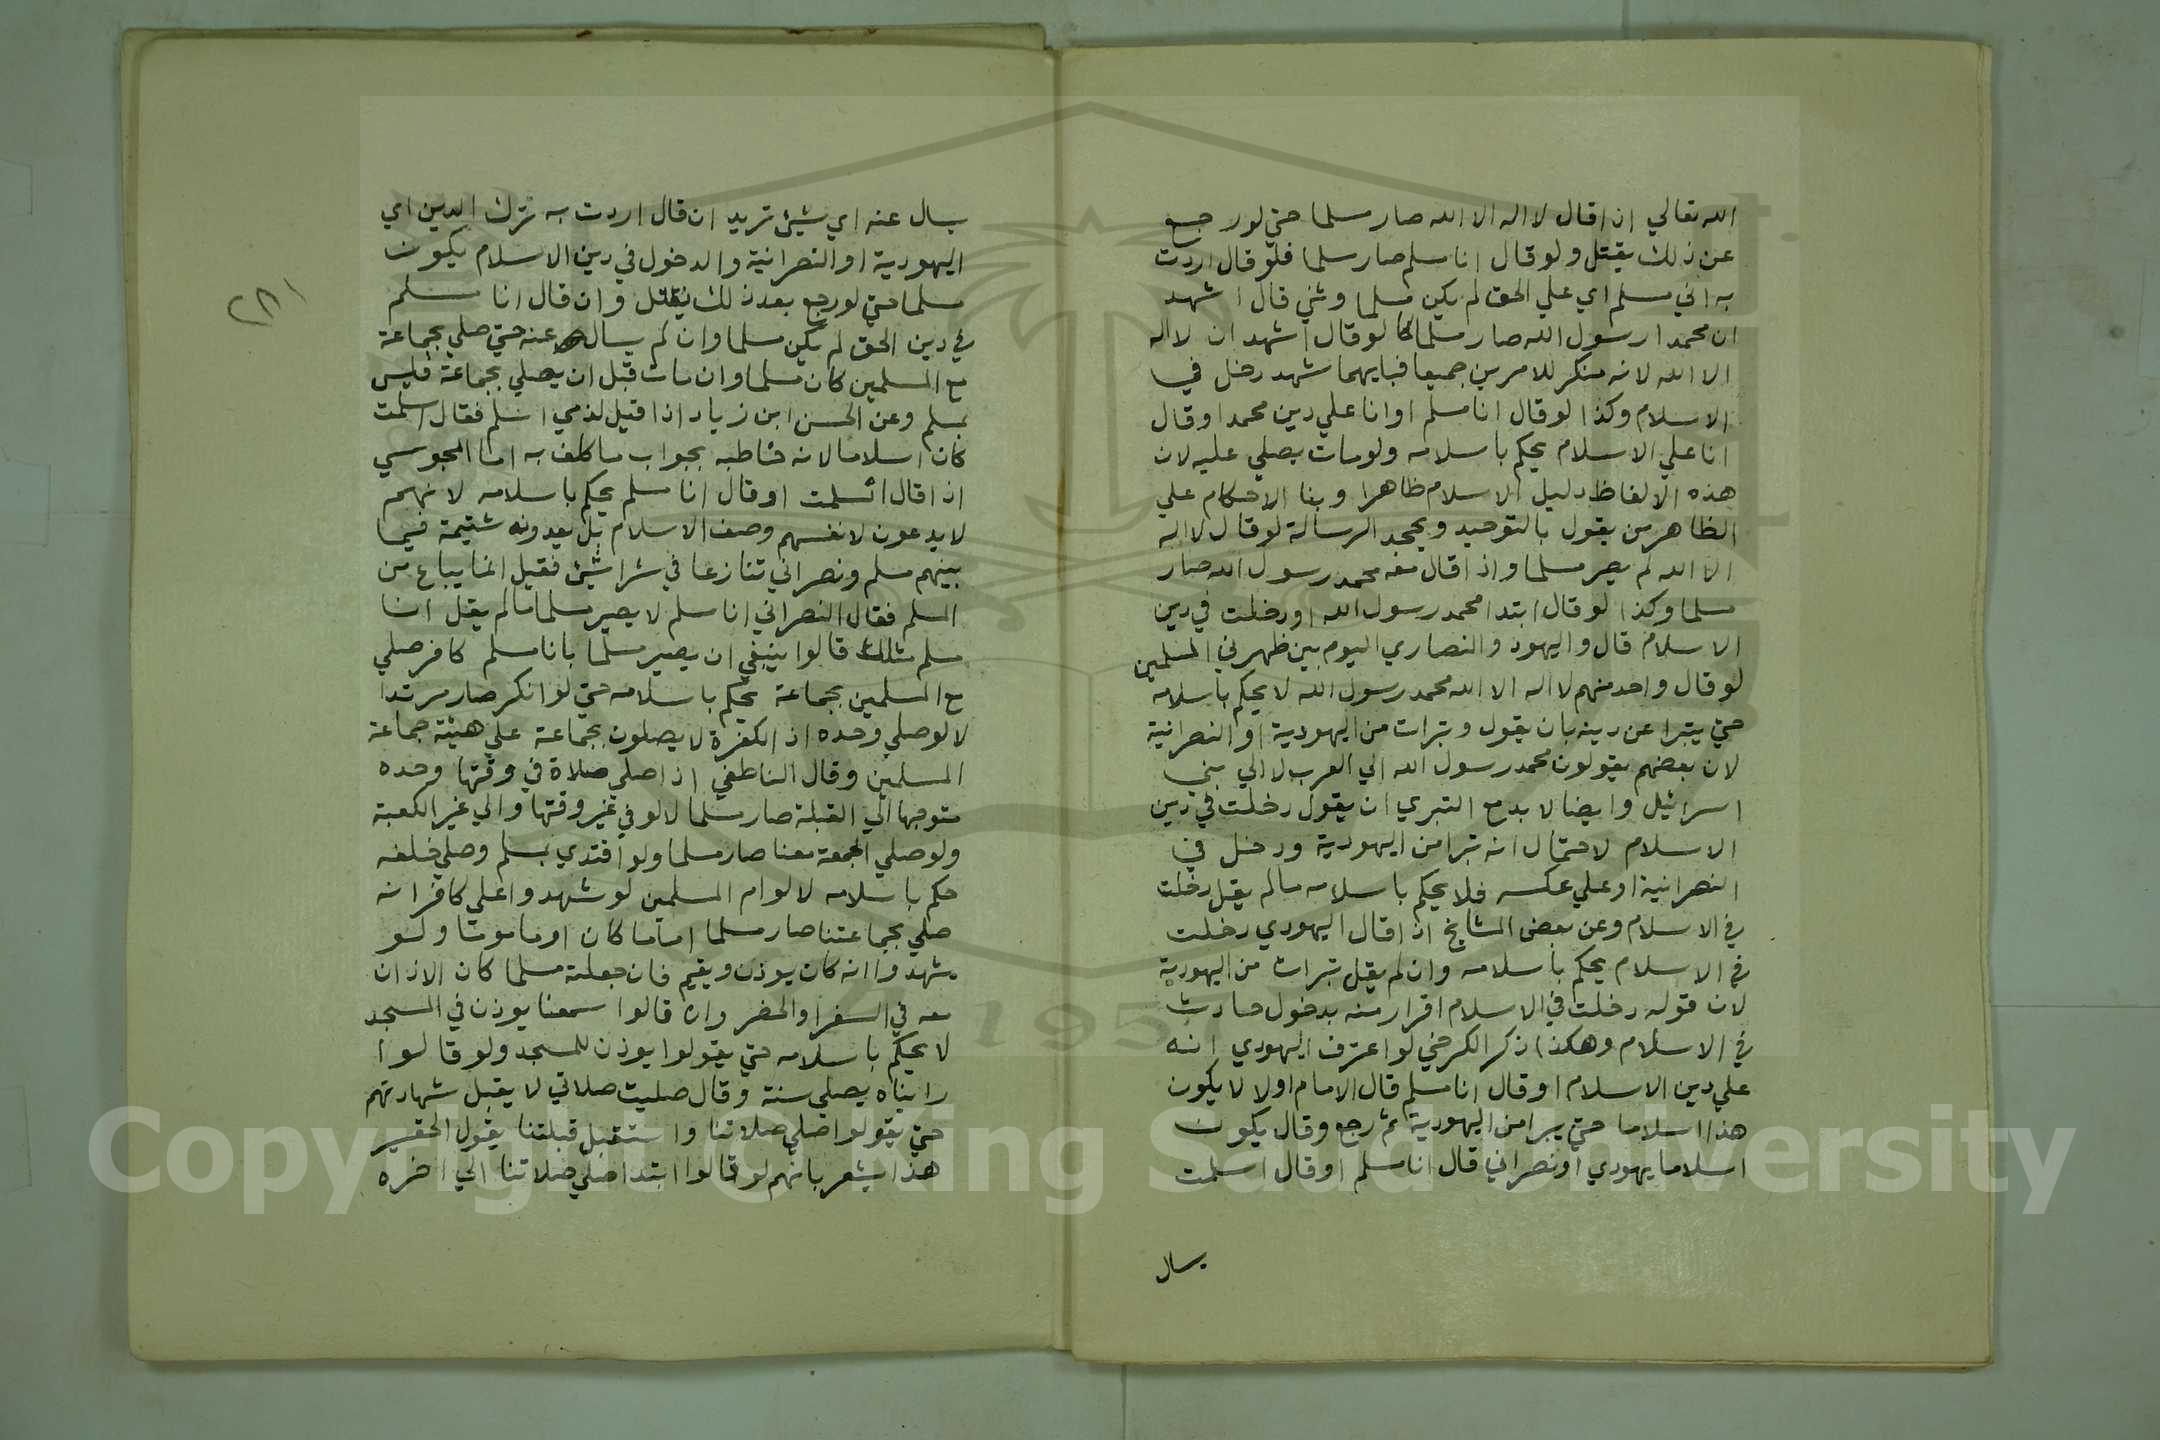 الله تعالي اذا قال لا اله الا الله صار مسلما حتي لو رجع
عن ذلك يقتل ولو قال انا مسلم صار مسلما فلو قال اردت
به اني مسلم اي علي الحق لم يكن مسلما وثني قال اشهد
ان محمدا رسول الله صار مسلما كما لو قال اشهد ان لا اله
الا الله لانه منكر للامرين جميعا فبايهما شهد دخل في
الاسلام وكذا لو قال انا مسلم او انا علي دين محمد او قال
انا علي الاسلام يحكم باسلامه ولو مات يصلي عليه لان
هذه الالفاظ دليل الاسلام ظاهرا وبنا الاحكام علي
الظاهر من يقول بالتوحيد ويجحد الرسالة لو قال لا اله
الا الله لم يصر مسلما واذا قال معه محمد رسول الله صار
مسلما وكذا لو قال ابتدا محمد رسول الله او دخلت في دين
الاسلام قال واليهود والنصاري اليوم بين ظهرني المسلمين
لو قال واحد منهم لا اله الا الله محمد رسول الله لا يحكم باسلامه
حتي يتبرا عن دينه بان يقول وتبرات من اليهودية او النصرانية
لان بعضهم يقولون محمد رسول الله الي العرب لا الي بني
اسرائيل وايضا لا بد مع التبري ان يقول دخلت في دين
الاسلام لاحتمال انه تبرا من اليهودية ودخل في
النصرانية او علي عكسه فلا يحكم باسلامه ما لم يقل دخلت
في الاسلام وعن بعض المشايخ اذا قال اليهودي دخلت
في الاسلام يحكم باسلامه وان لم يقل تبرات من اليهودية
لان قوله دخلت في الاسلام اقرار منه بدخول حادث
في الاسلام وهكذا ذكر الكرخي لو اعترف اليهودي انه
علي دين الاسلام او قال انا مسلم قال الامام اولا لا يكون
هذا اسلاما حتي يبرا من اليهودية ثم رجع وقال يكون
اسلاما يهودي او نصراني قال انا مسلم او قال اسلمت
يسال
يسال عنه اي شيئ تريد ان قال اردت به ترك الدين اي
اليهودية او النصرانية والدخول في دين الاسلام يكون
مسلما حتي لو رجع بعد ذلك يقتل وان قال انا مسلم
في دين الحق لم يكن مسلما وان لم يسال عنه حتي صلي بجماعة
مع المسلمين كان مسلما وان مات قبل ان يصلي بجماعة فليس
بمسلم وعن الحسن ابن زياد اذا قيل لذمي اسلم فقال اسلمت
كان اسلاما لانه خاطبه بجواب ما كلف به اما المجوسي
اذا قال اسلمت او قال انا مسلم يحكم باسلامه لانهم
لا يدعون لانفسهم وصف الاسلام بل يعدونه شتيمة فيما
بينهم مسلم ونصراني تنازعا في شرا شيئ فقيل انما يباع من
المسلم فقال النصراني انا مسلم لا يصير مسلما ما لم يقل انا
مسلم مثلك قالوا ينبغي ان يصير مسلما بانا مسلم كافر صلي
مع المسلمين بجماعة يحكم باسلامه حتي لو انكر صار مرتدا
لا لو صلي وحده اذ الكفرة لا يصلون بجماعة علي هيئة جماعة
المسلمين وقال الناطفي اذا صلي صلاة في وقتها وحده
متوجها الي القبلة صار مسلما لا لو في غير وقتها والي غير الكعبة
ولو صلي الجمعة معنا صار مسلما ولو اقتدي بمسلم وصلي خلفه
حكم باسلامه لا لو ام المسلمين لو شهدوا علي كافر انه
صلي بجماعتنا صار مسلما اماما كان او ماموما ولو
شهدوا انه كان يوذن ويقيم فان جعلته مسلما كان الاذان
معه في السفر والحضر وان قالوا سمعنا يوذن في المسجد
لا يحكم باسلامه حتي يقولوا يوذن للمسجد ولو قالوا
رايناه يصلي سنة وقال صليت صلاتي لا يقبل شهادتهم
حتي يقولوا صلي صلاتنا واستقبل قبلتنا يقول الحقير
هذا يشعر بانهم لو قالوا ابتدا صلي صلاتنا الي اخره
٢٨١
Copyright © King Saud University
1957